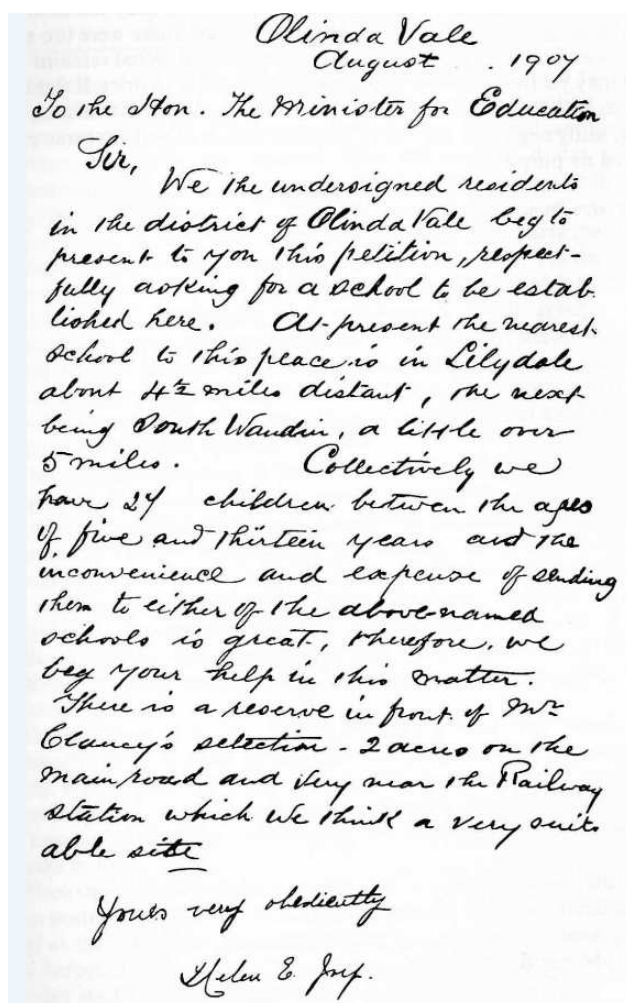 Olinda Vale
August . 1907
To the Hon. The Minister for Education
Sir,
We the undersigned residents
in the district of Olinda Vale beg to
present to you this petition, respect-
fully asking for a school to be estab
lished here. At present the nearest
school to this peace is in Lilydale
about 4½ miles distant, the next
being South Wandin, a little over
5 miles. Collectively we
have 27 children between the ages
of five and thirteen years and the
inconvenience and expense of sending
them to either of the above-named
schools is great, therefore, we
beg your help in this matter.
There is a reserve in front of Mr
Clancy's selection - 2 acres on the
main road and very near the Railway
station which we think a very suit
able site
Yours very obediently
Helen E.